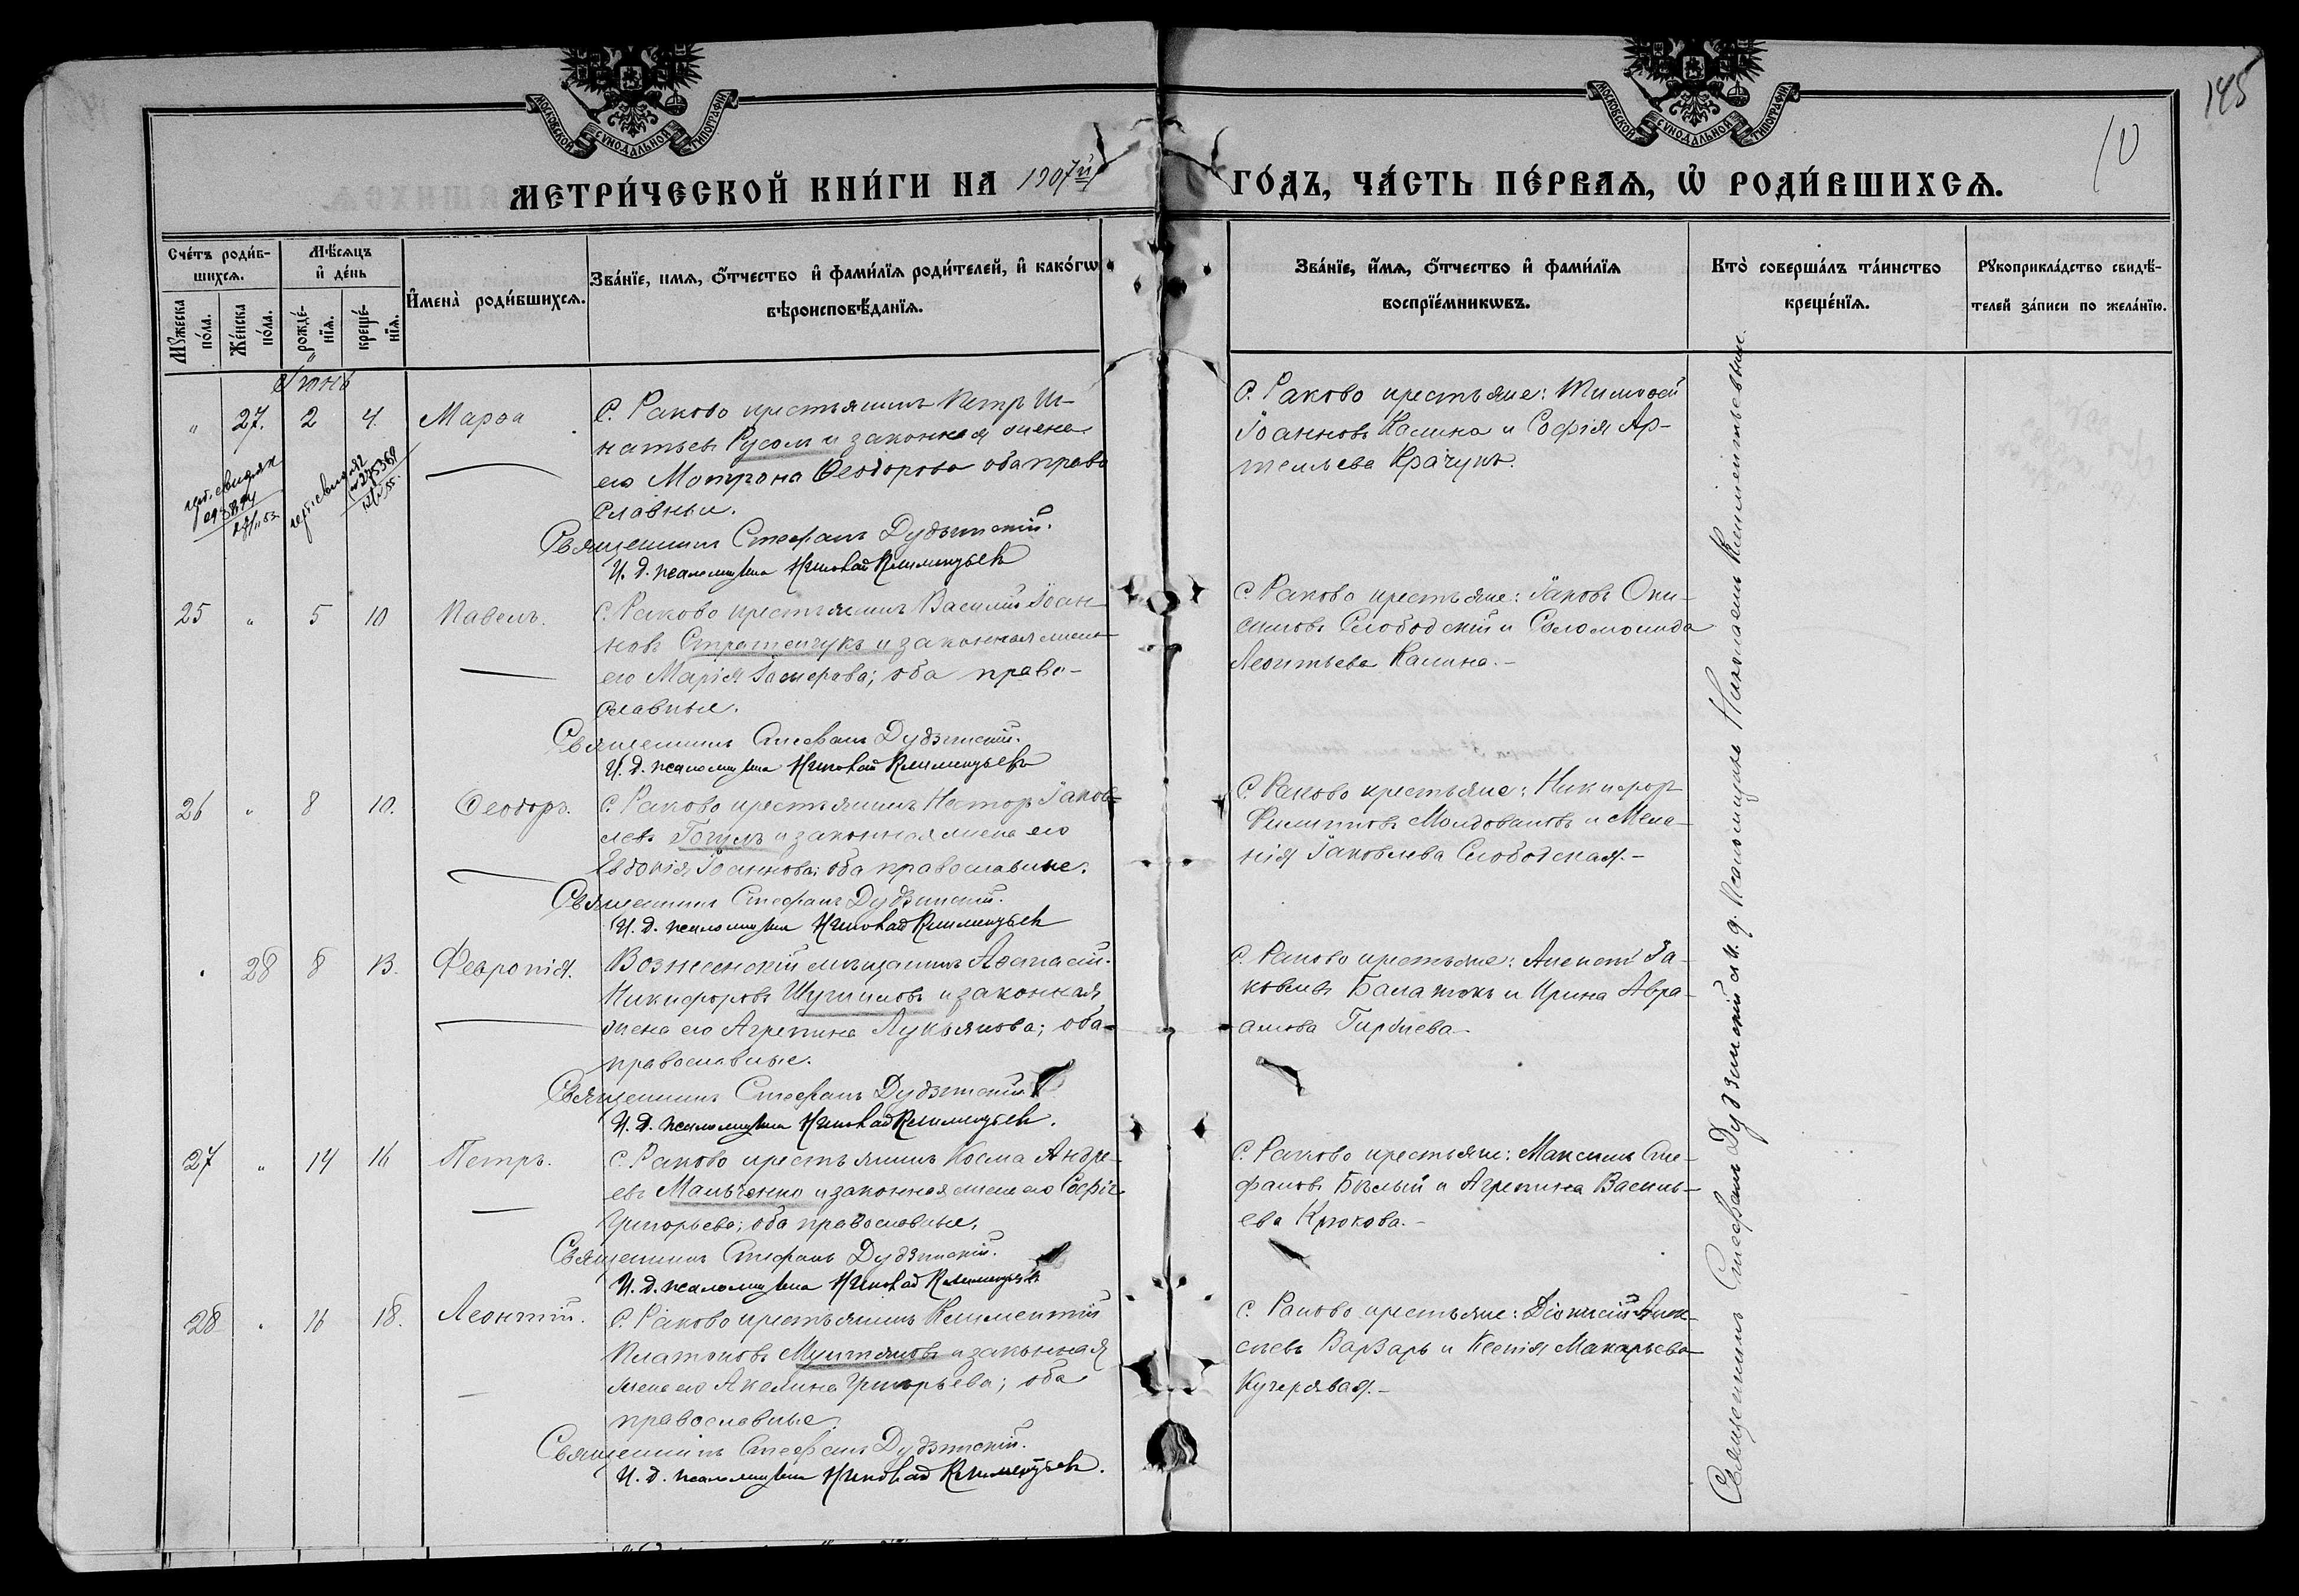 МОСКОВСКОЙ СУНОДАЛЬНОЙ ТИПОГРАФІИ
МОСКОВСКОЙ СУНОДАЛЬНОЙ ТИПОГРАФІИ
145
10
МЕТРИ́ЧЕСКОЙ КНИ́ГИ НА 1907й
ГО́ДЪ, ЧА́СТЬ ПЕ́РВАѦ, Ѡ҆ РОДИ́ВШИХСѦ.
Сче́тъ роди́в-
шихсѧ.
Мꙋ́жеска по́ла.
Же́нска по́ла.
Мѣ́сѧцъ
и҆ де́нь
рожде́-
нїѧ.
креще́-
нїѧ.
И҆мена̀ роди́вшихсѧ.
Зва́нїе, имѧ, ѻ҆́тчество и҆ фами́лїѧ роди́телей, и҆ како́гѡ
вѣроисповѣ́данїѧ.
Зва́нїе, и҆́мѧ, ѻ҆́тчество и҆ фами́лїѧ
воспрїе́мникѡвъ.
Кто̀ соверша́лъ та́инство
креще́нїѧ.
Рꙋкоприкла́дство свидѣ́-
телей за́писи по жела́нїю.
Іюнь
" 27. 2 4. Марѳа
С. Раково крестьянинъ Петръ Иг-
натьевъ Русолъ и законная жена
его Матрона Ѳеодорова оба право
славные.
Священникъ Стефанъ Дудзинскій.
И. д. псаломщика Николай Климентьевъ
С. Раково крестьяне: Тимоѳей
Іоанновъ Калина и Софія Ар-
темьева Крачунъ.
25 " 5 10 Павелъ.
С. Раково крестьянинъ Василій Іоан-
новъ Стратейчукъ и законная жена
его Марія; оба право-
славные.
Священникъ Стефанъ Дудзинскій.
И. д. псаломщика Николай Климентьевъ
С. Раково крестьяне: Іаковъ Они-
симовъ Слободскій и Соломонида
Леонтьева Калина.-
26 " 8 10. Ѳеодоръ.
С. Раково крестьянинъ Несторъ Іаков-
левъ Гогулъ и законная жена его
Евдокія Іоаннова; оба православные.
Священникъ Стефанъ Дудзинскій.
И. д. псаломщика Николай Климентьевъ
С. Раково крестьяне: Никифоръ
Филипповъ Молдовановъ и Мела-
нія Іаковлева Слободская.-
" 28 8 13. Февронія.
Вознесенскій мѣщанинъ Аѳанасій
Никифоровъ и законная
жена его Агрепина Лукьянова; оба
православные.
Священникъ Стефанъ Дудзинскій
И. д. псаломщика Николай Климентьевъ.
С. Раково крестьяне: Алексѣй Іа-
ковлевъ и Ирина Авра-
амова.
27 " 14 16 Петръ.
С. Раково крестьянинъ Косма Андре-
евъ Мальченко и законная жена его Софія
Григорьева; оба православные.
Священникъ Стефанъ Дудзинскій.
И. д. псаломщика Николай Климентьевъ
С. Раково крестьяне: Максимъ Сте-
фановъ Бѣлый и Агрепина Василь-
ева Крюкова.-
28 " 16 18. Леонтій.
С. Раково крестьянинъ Климентій
Платоновъ и законная
жена его Акилина Григорьева; оба
православные.
Священникъ Стефанъ Дудзинскій.
И. д. псаломщика Николай Климентьевъ.
С. Раково крестьяне: Діонисій Алек-
сѣевъ Варзарь и Ксенія Макарьева
Кучерявая.-
Священникъ Стефанъ Дудзинскій съ и. д. псаломщика Николаемъ Климентьевымъ.